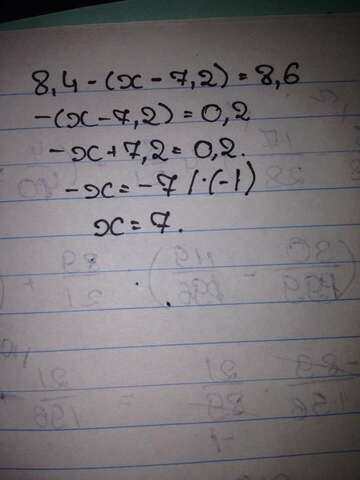 8,4-(x-7,2)=8,6
-(x-7,2)=0,2
-x+7,2=0,2.
-x=-7/·(-1)
x=7.